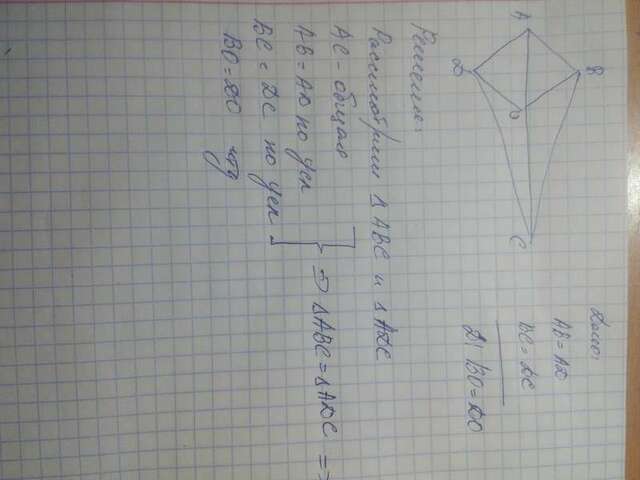 A
D
B
O
C
Дано:
AB=AD
BC=DC
Д| BO=DO
Решение:
Рассмотрим ΔABC и ΔADC
AC - общая
AB=AD по усл
BC=DC по усл
} => ΔABC=ΔADC =>
BO=DO чтд